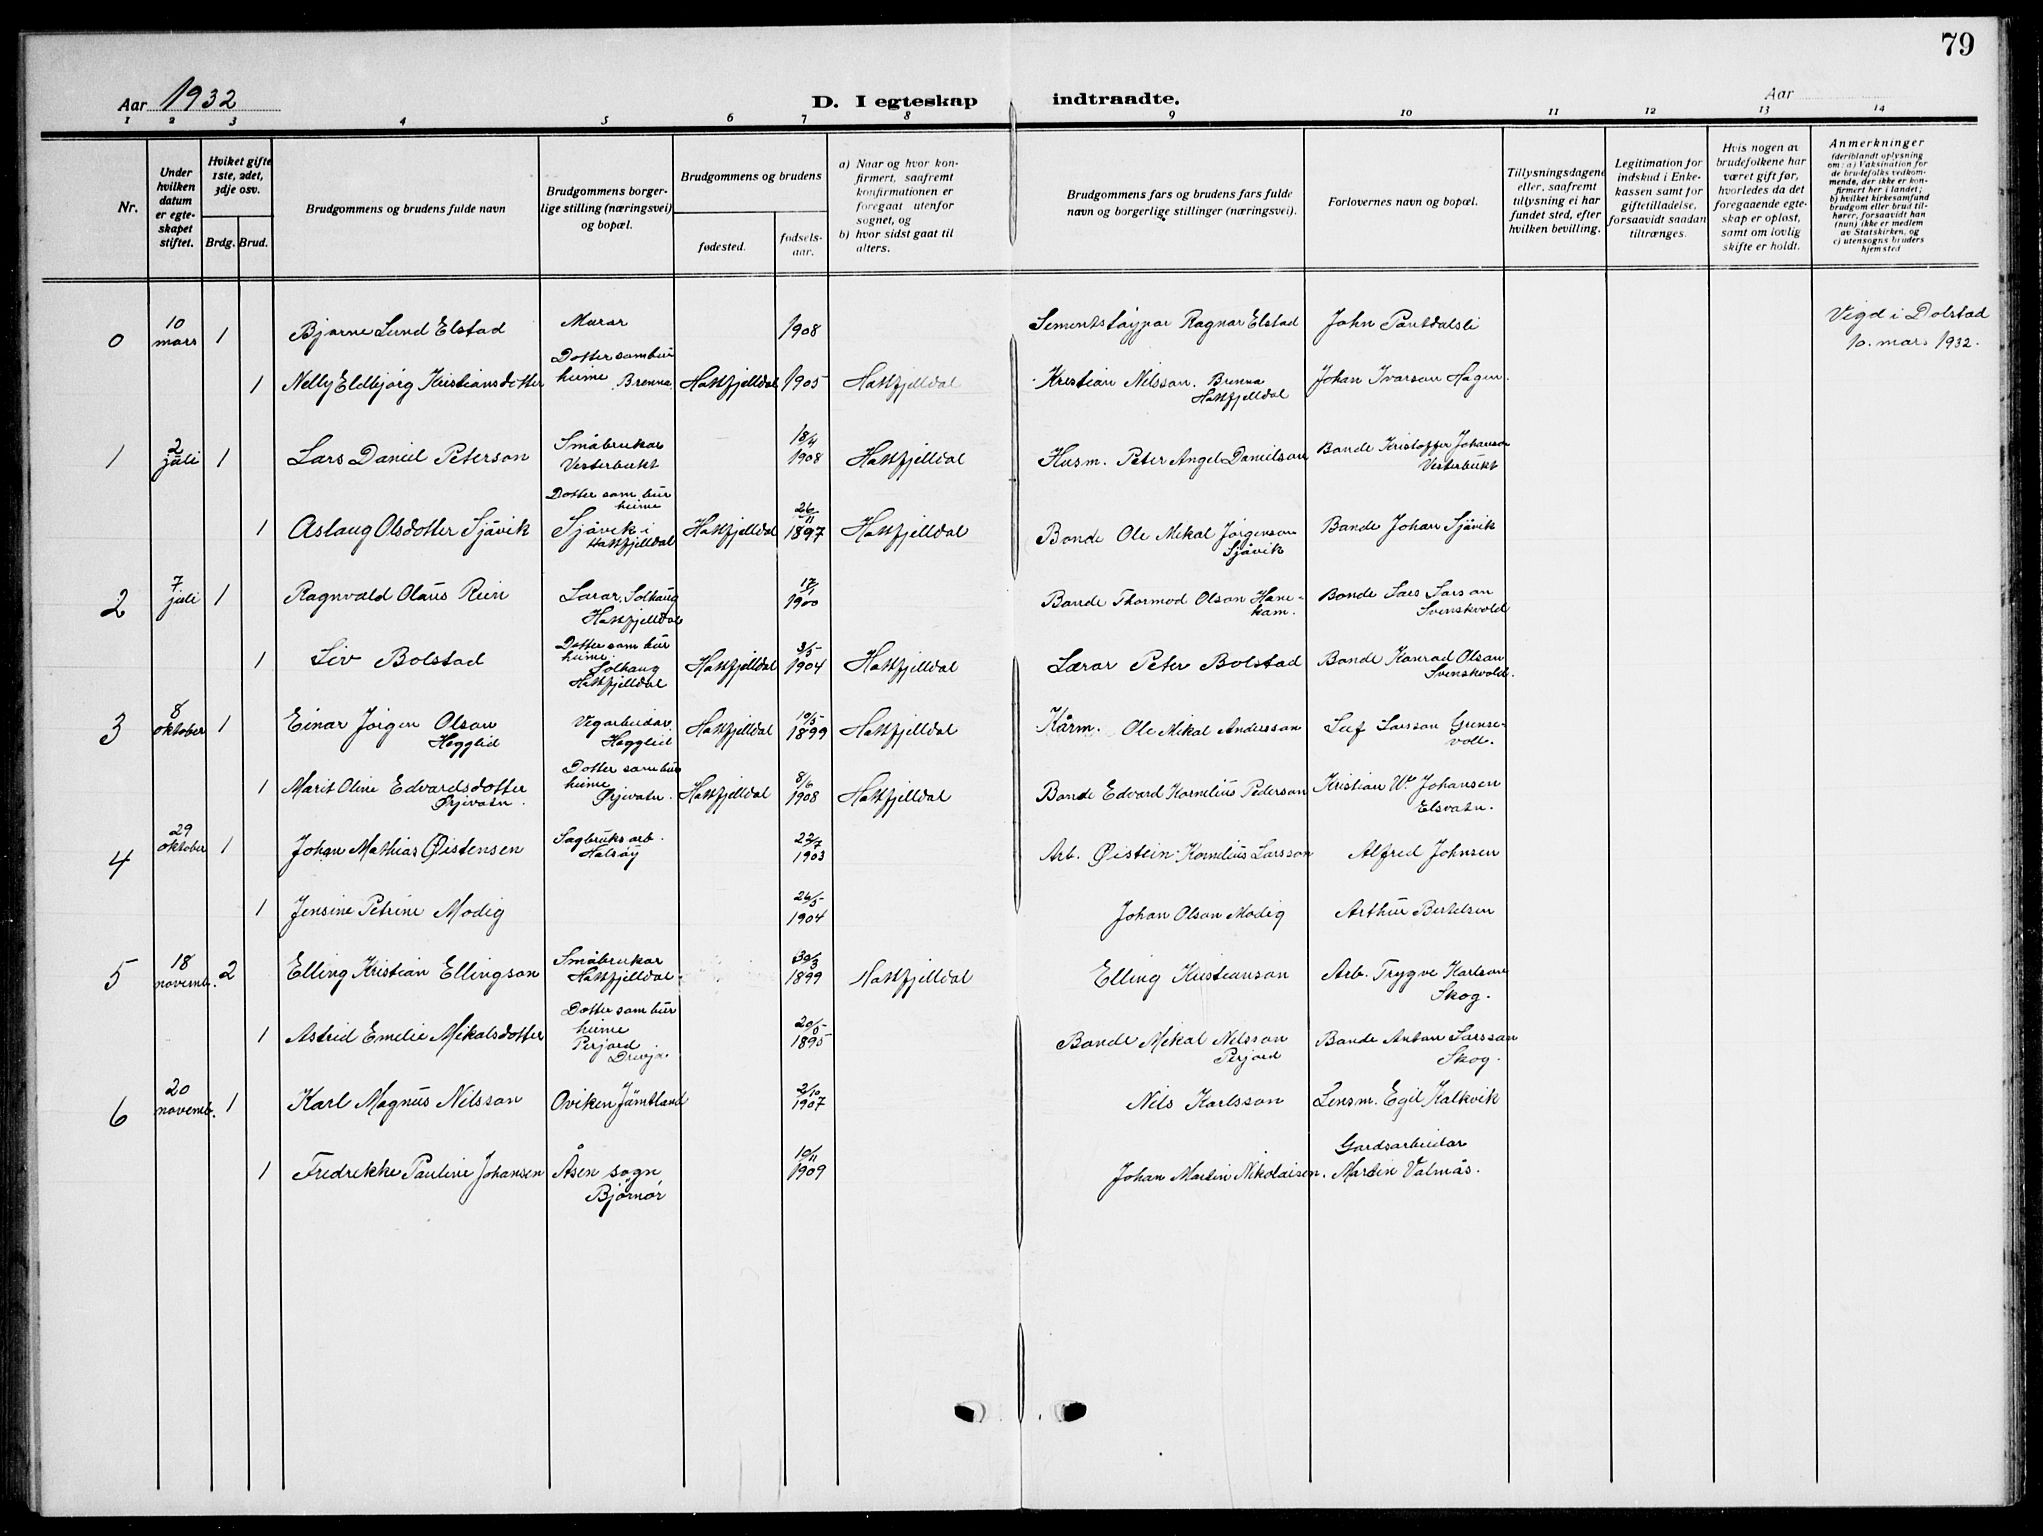 79
Aar 1932
D. I egteskap indtraadte.
Aar
1 2 3 4 5 6 7 8 9 10 11 12 13 14
Nr.
Under hvilken datum er egteskapet stiftet.
Hviket gifte 1ste, 2det, 3dje osv.
Brdg. Brud.
Brudgommens og brudens fulde navn
Brudgommens borgerlige stilling (næringsvei) og bopæl.
Brudgommens og brudens
fødested.
fødselsaar.
a) Naar og hvor konfirmert, saafremt konfirmationen er foregaat utenfor sognet, og
b) hvor sidst gaat til alters.
Brudgommens fars og brudens fars fulde navn og borgerlige stillinger (næringsvei).
Forlovernes navn og bopæl.
Tillysningsdagene eller, saafremt tillysning ei har fundet sted, efter hvilken bevilling.
Legitimation for indskud i Enkekassen samt for giftetilladelse, forsaavidt saadan tiltrænges.
Hvis nogen av brudefolkene har været gift før, hvorledes da det foregaaende egteskap er opløst, samt om lovlig skifte er holdt.
Anmerkninger (deriblandt oplysning om: a) Vaksination for de brudefolks vedkommende, der ikke er konfirmert her i landet; b) hvilket kirkesamfund brudgom eller brud tilhører, forsaavidt han (hun) ikke er medlem av Statskirken, og c) utensogns bruders hjemsted
0 10 mars 1 Bjarne Lund Elstad Murar 1908 Sementstøypar Ragnar Elstad John Pantdalsli Vigd i Dolstad 10. mars 1932.
1 Nelly Eldbjørg Kristiansdotter Dotter som bur heime Brenna Hattfjelldal 1905 Hattfjelldal Kristian Nilsson. Brenna Hattfjelldal Johan Ivarson Hagen.
1 2 juli 1 Lars Daniel Peterson Småbrukar Vesterbukt 18/4 1908 Hattfjelldal Husm. Peter Angel Danielson Bonde Kristoffer Johanson Vesterbukt
1 Aslaug Olsdotter Sjåvik Dotter som bur heime Sjåvik i Hattfjelldal Hattfjelldal 26/11 1897 Hattfjelldal Bonde Ole Mikal Jørgenson Sjåvik Bonde Johan Sjåvik
2 7 juli 1 Ragnvald Olaus Rein Lærar, Solhaug Hattfjelldal 17/1 1900 Bonde Thormod Olson Hanekam. Bonde Lars Larson Svenskvold
1 Liv Bolstad Dotter som bur heime. Solhaug Hattfjelldal Hattfjelldal 3/5 1904 Hattfjelldal Lærar Peter Bolstad Bonde Konrad Olson Svenskvold.
3 8 oktober 1 Einar Jørgen Olson Hegglid Vegarbeidar Hegglid Hattfjelldal 10/5 1899 Hattfjelldal Kårm. Ole Mikal Andersson Leif Larsson Grensevoll.
1 Marit Oline Edvardsdotter Ørjevatn. Dotter som bur heime Ørjevatn. Hattfjelldal 8/6 1908 Hattfjelldal Bonde Edvard Kornelius Pederson Kristian W. Johansen Elsvatn.
4 29 oktober 1 Johan Mathias Øistensen Sagbruksarb. Halsøy 22/7 1903 Arb. Øistein Kornelius Larsson Alfred Johnsen
1 Jensine Petrine Modig 26/5 1904 Johan Olson Modig Arthur Bertelsen
5 18 novemb. 2 Elling Kristian Ellingson Småbrukar Hattfjelldal. 30/3 1899 Hattfjelldal Elling Kristianson Arb. Trygve Karlson Skog.
1 Astrid Emelie Mikalsdotter Dotter som bur heime Perjord Drevja. 20/5 1895 Bonde Mikal Nilsson Perjord Bonde Anton Larsson Skog.
6 20 novemb. 1 Karl Magnus Nilsson Oviken Jämtland 2/10 1907 Nils Karlsson Lensm. Egil Kalkvik
1 Fredrikke Pauline Johansen Åsen sogn Bjørnør 10/11 1909 Johan Martin Nikolaisen. Gardsarbeidar Martin Valmås.